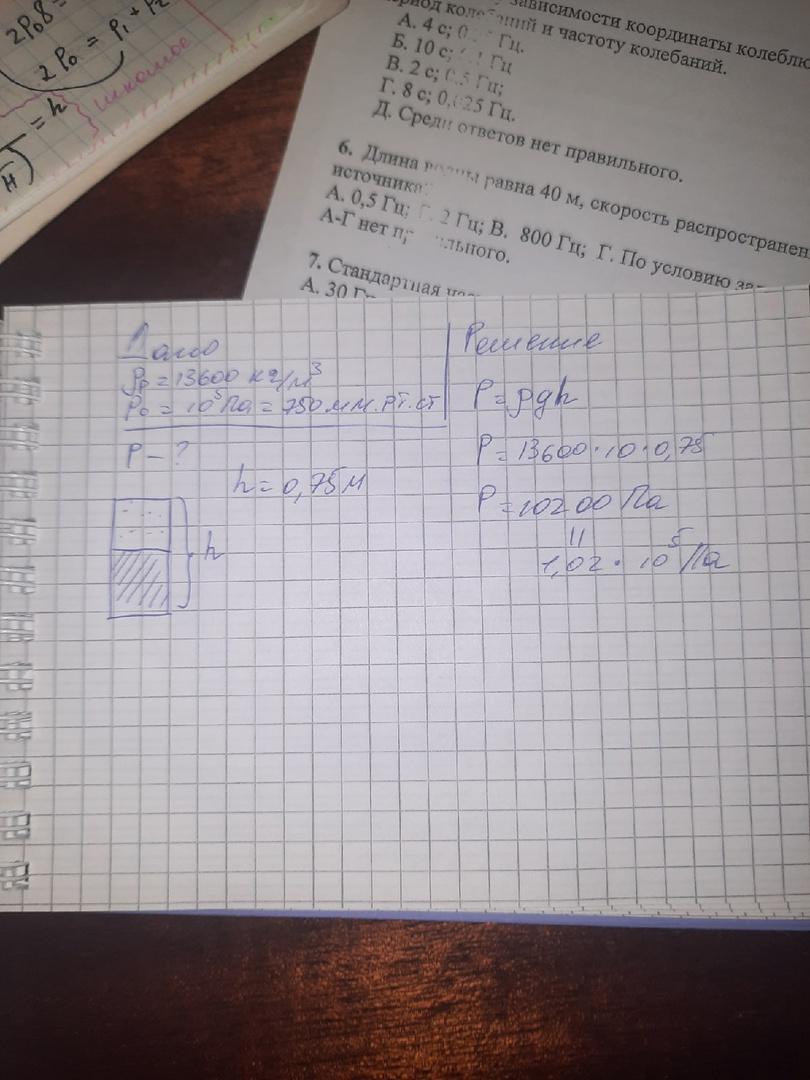 2P₀8
2P₀ = P₁ + P₂
= h
H)
школьное
зависимости координаты колеблю
колебаний и частоту колебаний.
А. 4 с; Гц.
Б. 10 с; Гц
В. 2 с; 0,5 Гц;
Г. 8 с; 0,025 Гц.
Д. Среди ответов нет правильного.
6. Длина волны равна 40 м, скорость распространен
источника
А. 0,5 Гц; 2 Гц; В. 800 Гц; Г. По условию за
А-Г нет правильного.
7. Стандартная
А. 30 Гц
Дано
ρр = 13600 кг/м³
P₀ = 10⁵ Па = 750 мм.рт.ст
P - ?
h = 0,75 м
h
Решение
P = ρgh
P = 13600 · 10 · 0,75
P = 10200 Па
||
1,02 · 10⁵ Па